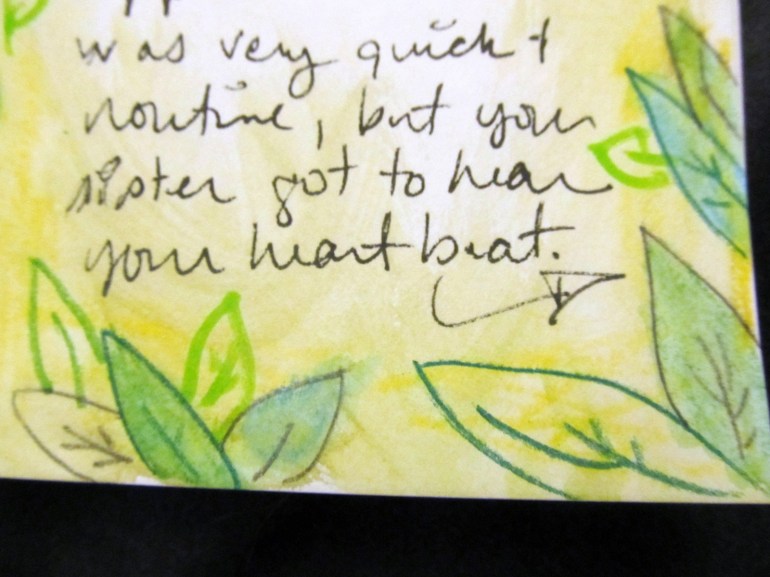 was very quick +
routine, but your
sister got to hear
your heart beat.